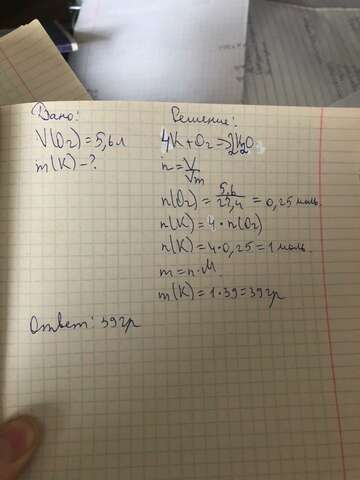 Дано:
V(O₂)=5,6л
m(K)-?
Решение:
4K+O₂=>2K₂O
n=V/Vm
n(O₂)=5,6/22,4=0,25 моль.
n(K)=4·n(O₂)
n(K)=4·0,25=1 моль.
m=n·M.
m(K)=1·39=39гр
Ответ: 39гр